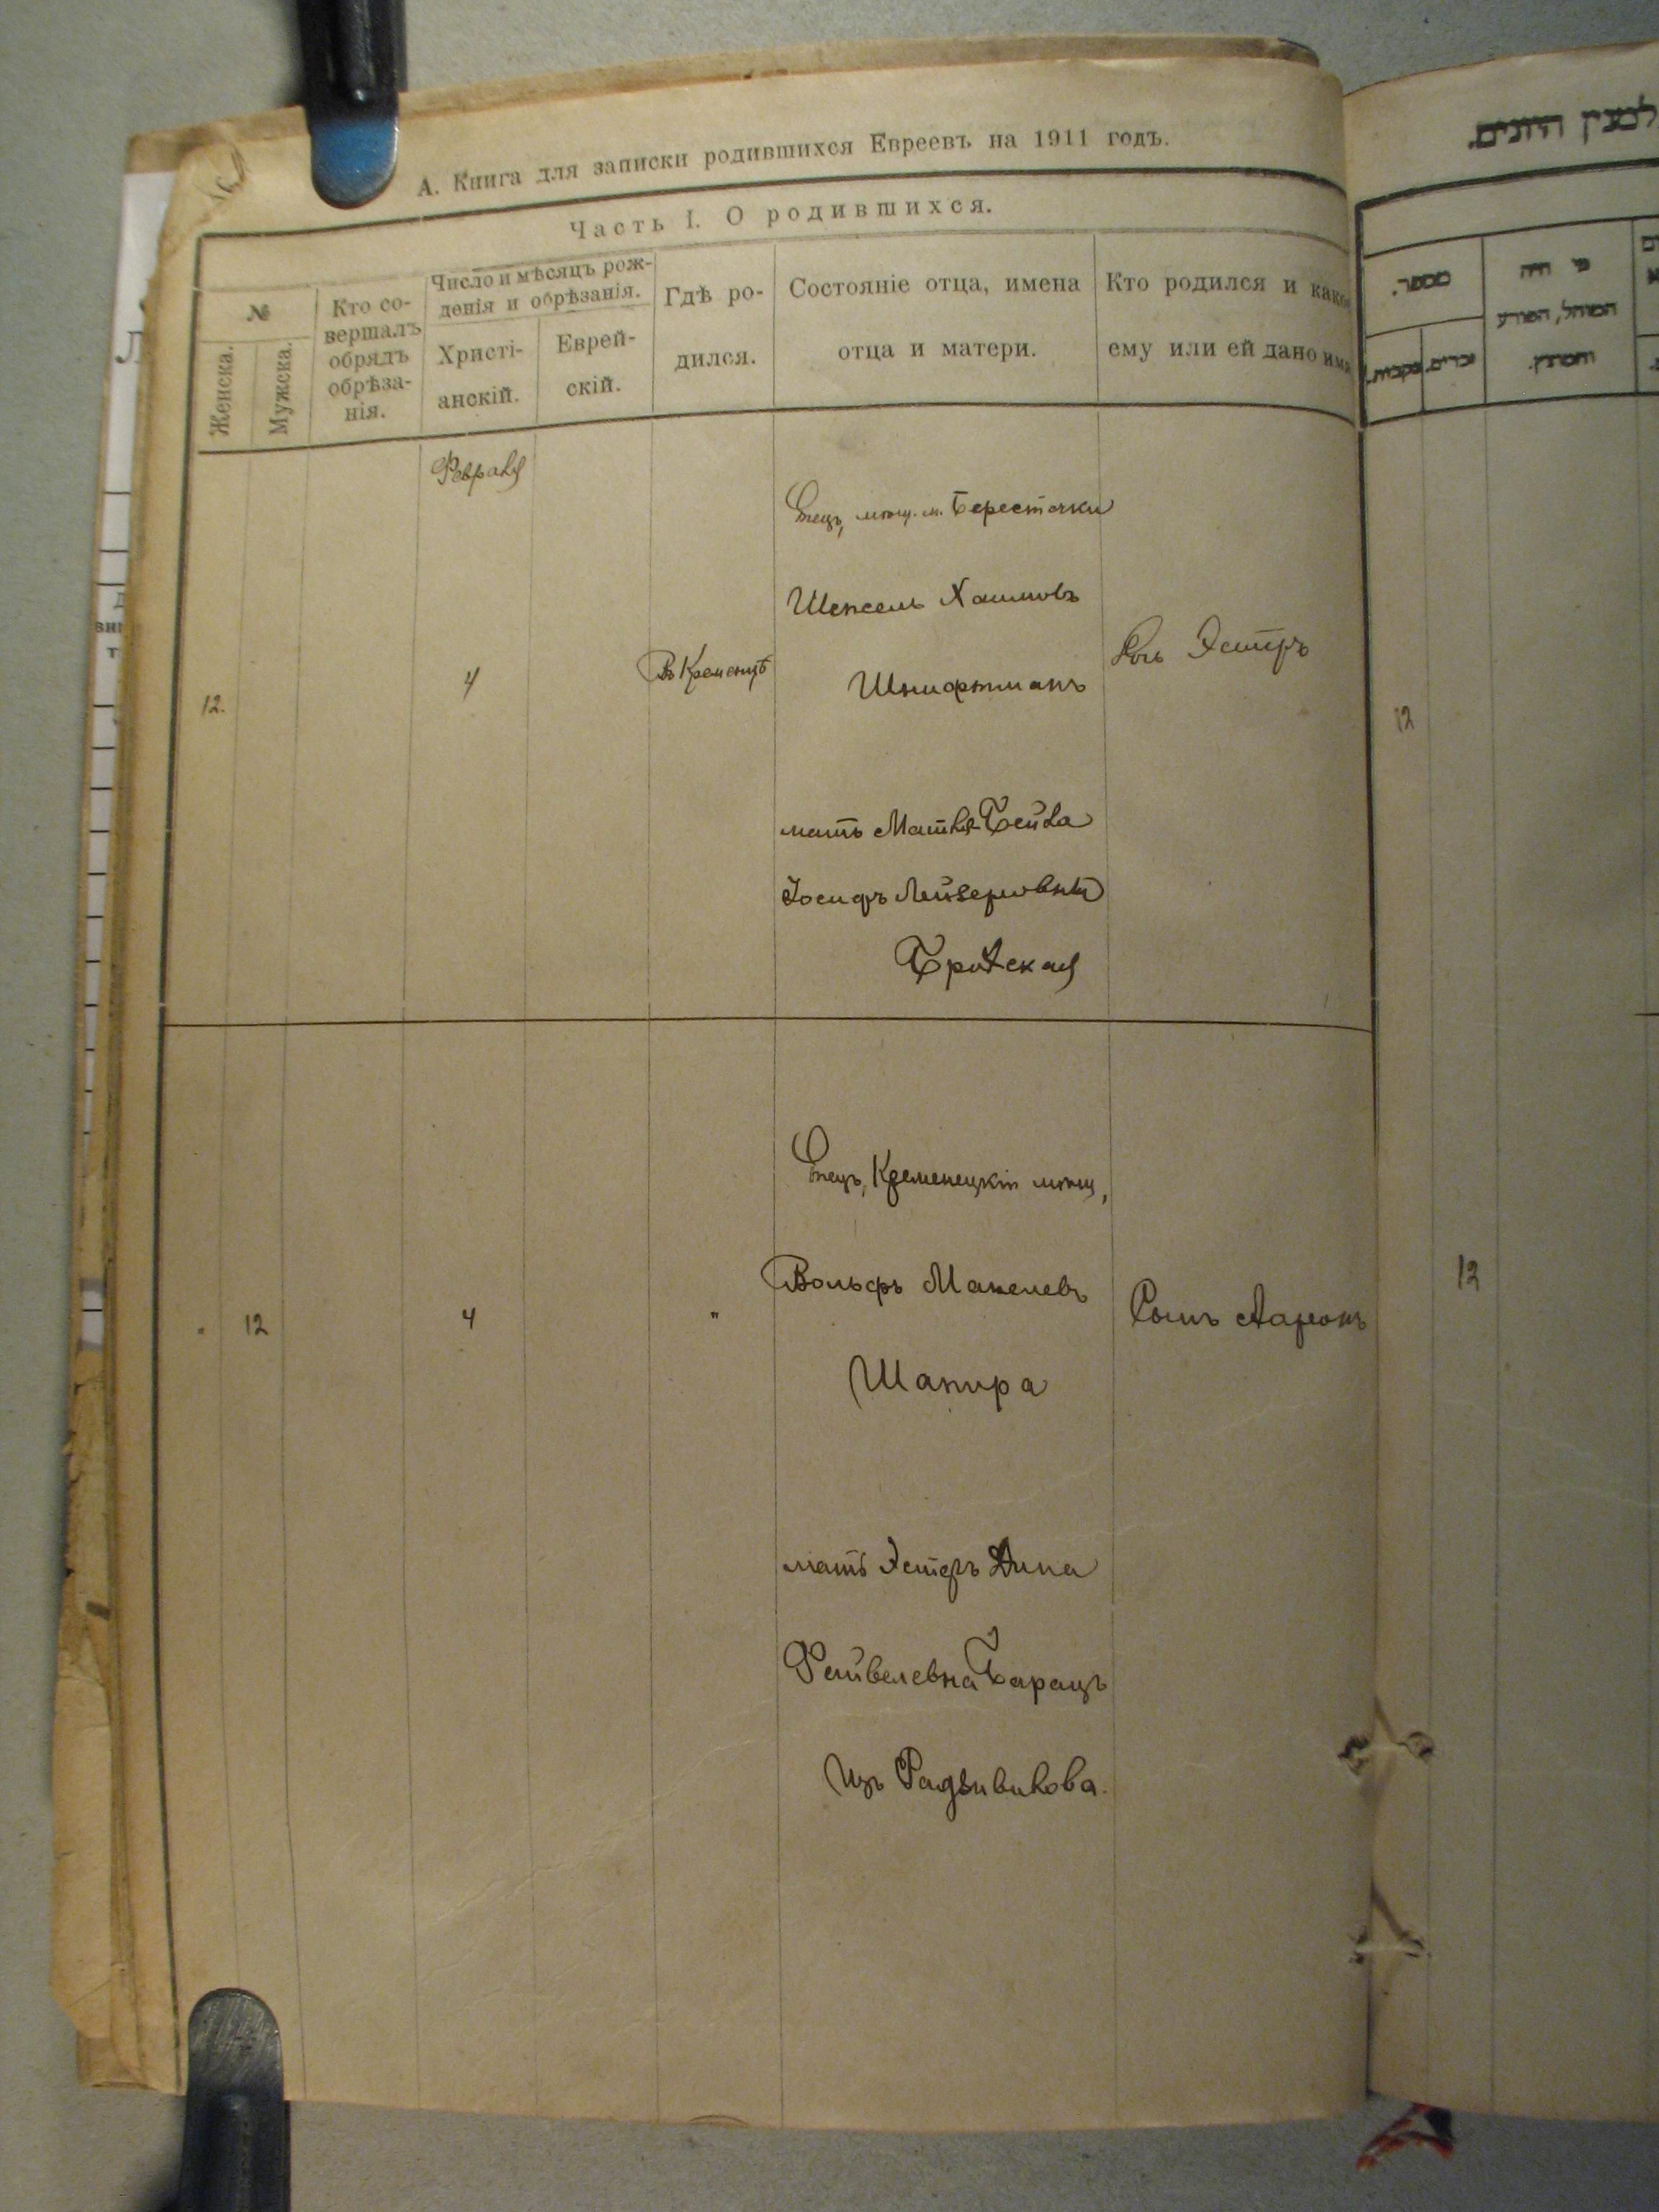 А. Книга для записки родившихся Евреевъ на 1911 годъ.
Часть I. О родившихся.
№
Женска.
Мужска.
Кто со-
вершалъ
обрядъ
обрѣза-
нія.
Число и мѣсяцъ рож-
денія и обрѣзанія.
Христі-
анскій.
Еврей-
скій.
Гдѣ ро-
дился.
Состояніе отца, имена
отца и матери.
Кто родился и какое
ему или ей дано имя
Февраля
12.
4
Въ Кременцѣ
Отецъ, мѣщ. м. Берестечки
Шепсель Хаимовъ
Шнифтманъ
мать Матля-Бейла
Іосифъ Лейзеровна
Бродская
Дочь Эстеръ
12
4
"
Отецъ, Кременецкій мѣщ,
Вольфъ Манелевъ
Шапира
мать Эстеръ Дина
Фейвелевна Барацъ
изъ Радзивилова.
Сынъ Ааронъ
היונים.
מספר.
נקבות.
זכרים.
מי היה
המוהל, הפורע
והמוצץ.
12
12